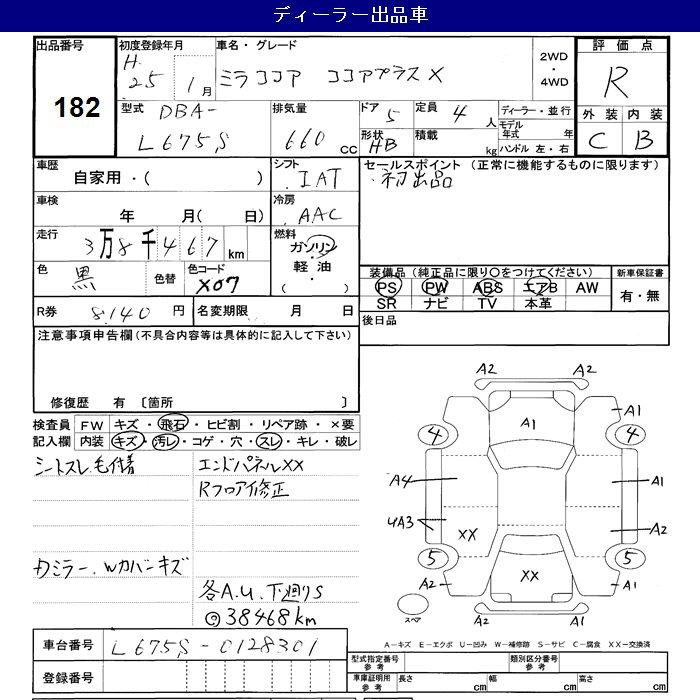 ディーラー出品車
出品番号
182
初度登録年月
H.
25 1月
車名・グレード
ミラココア ココアプラスX
2WD
・
4WD
評価点
R
外装 内装
C B
型式 DBA-
L675S
排気量
660 cc
ドア 5
定員 4人
形状 HB
積載 kg
ディーラー・並行
モデル
年式 年
ハンドル 左・右
車歴
自家用・( )
シフト
IAT
セールスポイント (正常に機能するものに限ります)
初出品
車検
年 月( 日)
冷房
AAC
走行
3万8千467km
燃料
ガソリン
・
軽油
( )
色
黒
色替
色コード
X07
装備品 (純正品に限り〇をつけてください)
PS PW ABS エアB AW
SR ナビ TV 本革
新車保証書
有・無
R券 8140円
名変期限 月 日
後日品
注意事項申告欄(不具合内容等は具体的に記入して下さい)
修復歴 有 〔箇所 〕
検査員
記入欄
FW キズ・飛石・ヒビ割・リペア跡・×要
内装 キズ・汚レ・コゲ・穴・スレ・キレ・破レ
シートスレ.毛付着
エンドパネルXX
Rフロア修正
カミラー.Wカバーキズ
各A.U.下廻りS
38468km
A2 A2
A1
A1
4 4
A4 A1
4A3 A2
XX
5 5
XX
A2 A1
A2 A1
スペア
A-キズ E-エクボ U-凹み W-補修跡 S-サビ C-腐食 XX-交換済
車台番号 L675S-0128301
登録番号
型式指定番号
参考
類別区分番号
参考
車庫証明用
参考
長さ cm 幅 cm 高さ cm